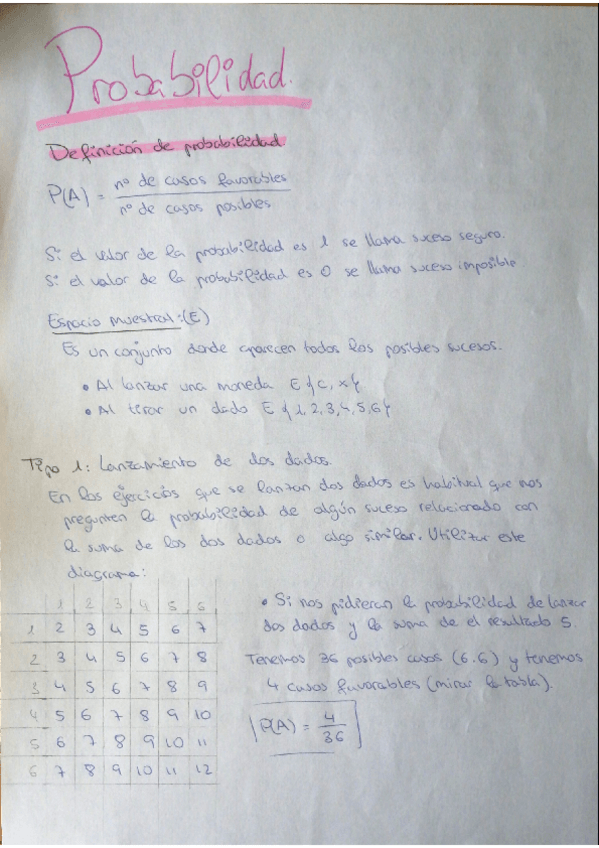 Probabilidad.
Definición de probabilidad
P(A) = nº de casos favorables
nº de casos posibles
Si el valor de la probabilidad es 1 se llama suceso seguro.
Si el valor de la probabilidad es 0 se llama suceso imposible
Espacio muestral:(E)
Es un conjunto donde aparecen todos los posibles sucesos.
• Al lanzar una moneda E{c, x}
• Al tirar un dado E{1,2,3,4,5,6}
Tipo 1: Lanzamiento de dos dados.
En los ejercicios que se lanzan dos dados es habitual que nos
pregunten la probabilidad de algún suceso relacionado con
la suma de los dos dados o algo similar. Utilizar este
diagrama:
1 2 3 4 5 6
1 2 3 4 5 6 7
2 3 4 5 6 7 8
3 4 5 6 7 8 9
4 5 6 7 8 9 10
5 6 7 8 9 10 11
6 7 8 9 10 11 12
• Si nos pidieran la probabilidad de lanzar
dos dados y la suma de el resultado 5.
Tenemos 36 posibles casos (6·6) y tenemos
4 casos favorables (mirar la tabla).
P(A) = 4
36